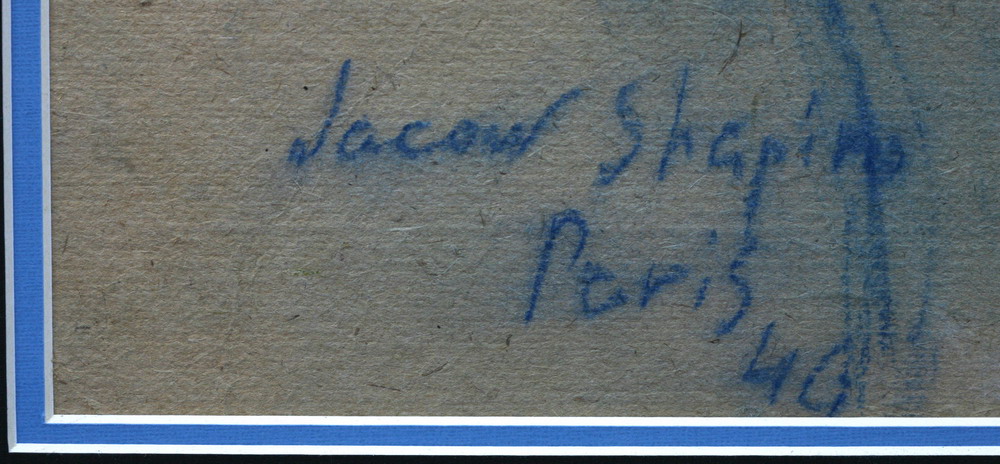 Jacow Shapiro
Paris
46